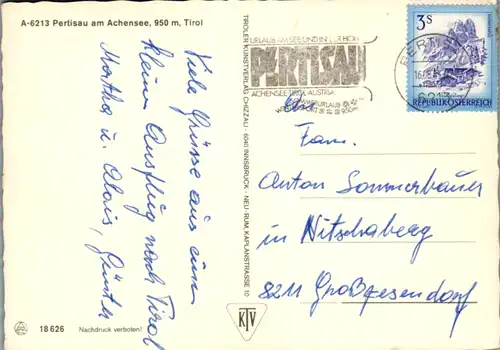 A-6213 Pertisau am Achensee, 950 m, Tirol
Viele Grüsse aus einem
kleinen Ausflug nach Tirol
Martha u. Alois, Günter
18626 Nachdruck verboten!
TIROLER KUNSTVERLAG CHIZZALI · 6040 INNSBRUCK - NEU-RUM, KAPLANSTRASSE 10
KTV
URLAUB AM SEE UND IN DER HÖH
PERTISAU
ACHENSEE-TIROL-AUSTRIA
950m
PERTISAU
6213
3 S
REPUBLIK ÖSTERREICH
Fam.
Anton Sommerbauer
in Nitschaberg
8211 Großpesendorf